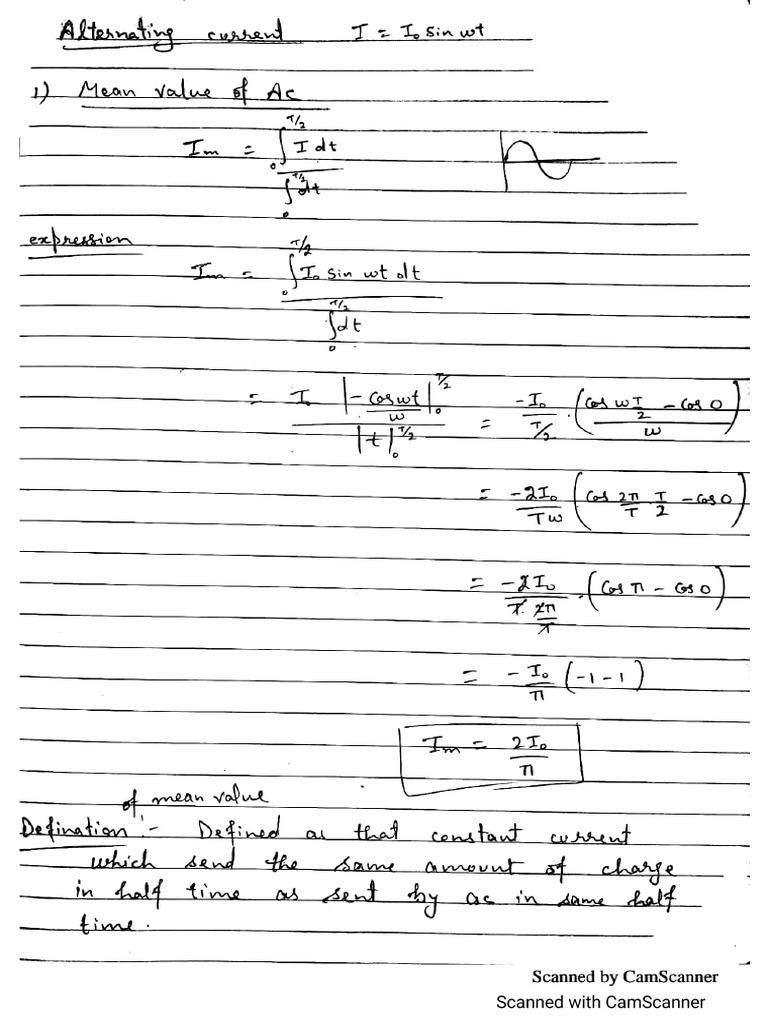 Alternating current I = I₀ sin wt
1) Mean value of Ac
Im = ∫₀^T/2 I dt / ∫₀^T/2 dt
expression
Im = ∫₀^T/2 I₀ sin wt dt / ∫₀^T/2 dt
= I₀ |-cos wt / w|₀^T/2 / |t|₀^T/2 = -I₀ / T/2 . (cos w T/2 - cos 0 / w)
= -2I₀ / Tw (cos 2π/T T/2 - cos 0)
= -2I₀ / T. 2π/T . (cos π - cos 0)
= -I₀/π (-1-1)
Im = 2I₀/π
of mean value
Defination :- Defined as that constant current
which send the same amount of charge
in half time as sent by ac in same half
time.
Scanned by CamScanner
Scanned with CamScanner